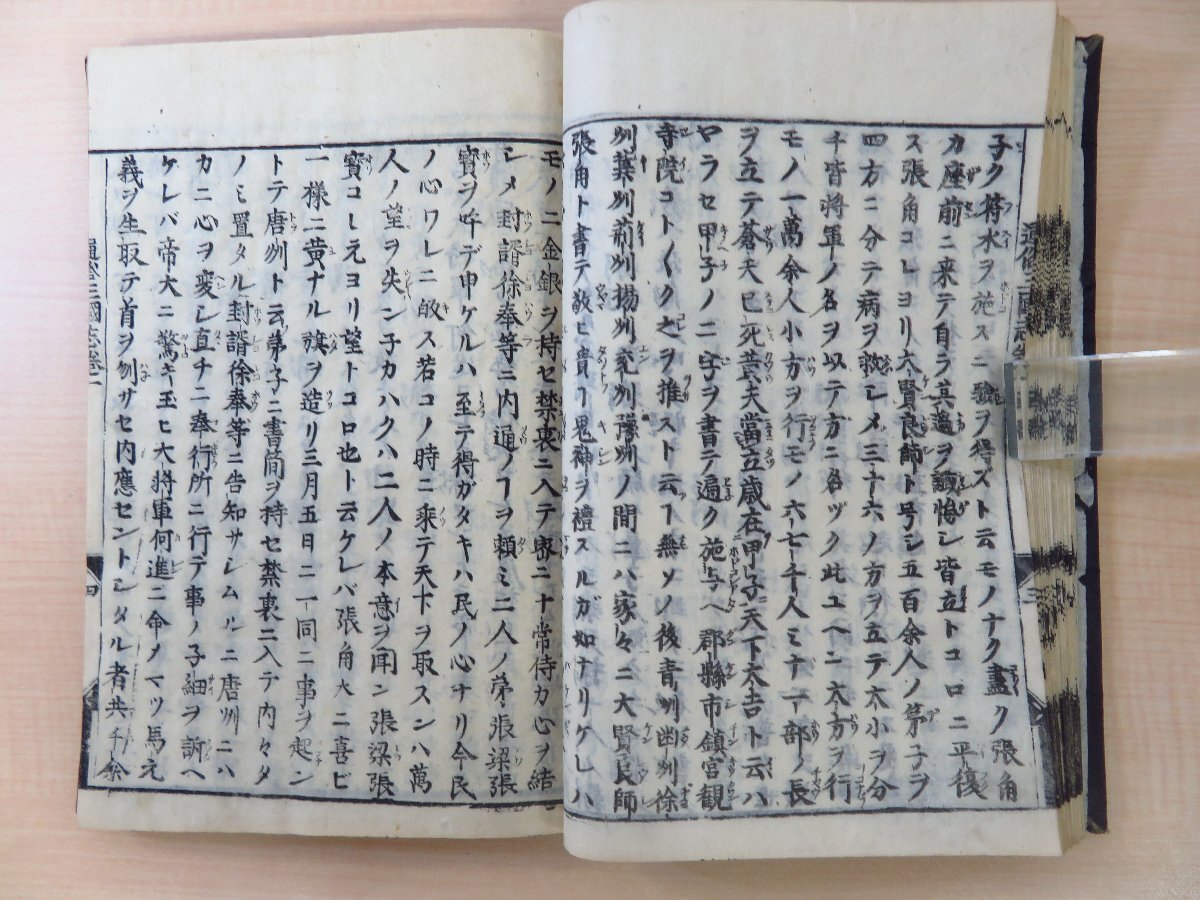 子ク符水ヲ施スニ驗ヲ得ズト云モノナク盡ク張角
カ座前ニ来テ自ラ其過ヲ讃悔シ皆立トコロニ平復
ス張角コレヨリ大賢良師ト号シ五百余人ノ弟子ヲ
四方ニ分テ病ヲ救レメ三十六ノ方ヲ立テ大小ヲ分
千皆將軍ノ名ヲ以テ方ニ名ヅク此ユヘニ大方ヲ行
モノ一萬余人小方ヲ行モノ六七千人ミナ一部ノ長
ヲ立テ蒼天已死黄夫當立歳在甲子天下大吉ト云ハ
ヤラセ甲子ノ二字ヲ書テ遍ク施与ヘ郡縣市鎮宮観
寺院コト〱ク之ヲ推ストヿ無ソノ後青州幽州徐
州冀州荊州揚州兖州豫州ノ間ニハ家々ニ大賢良師
張角ト書テ敬ヒ貴ヿ鬼神ヲ禮スルガ如ナリケレハ
モノニ金銀ヲ持セ禁裏ニ入テ密ニ十常侍カ心ヲ結
シメ封諝徐奉等ニ内通ノヿヲ頼ミ二人ノ弟張梁張
寳ヲ呼デ申ケルハ至テ得ガタキハ民ノ心ナリ今民
ノ心ワレニ皈ス若コノ時ニ乗テ天下ヲ取スンハ萬
人ノ望ヲ失ン子カハクハ二人ノ本意ヲ聞ン張梁張
寳コレ元ヨリ望トコロ也ト云ケレバ張角大ニ喜ビ
一樣ニ黄ナル旗ヲ造リ三月五日ニ一同ニ事ヲ起ン
トテ唐州ト云弟子ニ書簡ヲ持セ禁裏ニ入テ内々タ
ノミ置タル封諝徐奉等ニ告知サレムルニ唐州ニハ
カニ心ヲ変レ直チニ奉行所ニ行テ事ノ子細ヲ訴ヘ
ケレバ帝大ニ驚キ玉ヒ大将軍何進ニ命メマツ馬元
義ヲ生取テ首ヲ刎サセ内應セントシタル者共千余
四